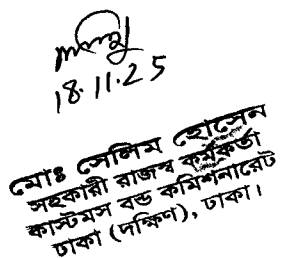 18.11.25
মোঃ সেলিম হোসেন
সহকারী রাজস্ব কর্মকর্তা
কাস্টমস বন্ড কমিশনারেট
ঢাকা (দক্ষিণ), ঢাকা।